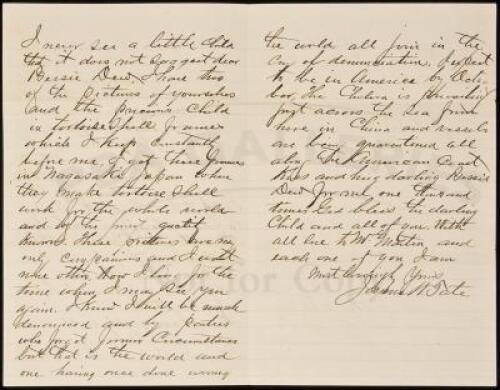 I never see a little child
that it does not suggest dear
Bessie Dew. I have two
of the pictures of yourselves
and the precious child
in tortoise shell frames
which I keep constantly
before me, I got these frames
in Nagasaki Japan where
they make tortoise shell
work for the whole world
and of the quality
known. These pictures are my
only companions and I want
none other. How I live for the
time when I may see you
again. I know I will be much
denounced and by parties
who forget former circumstances
but that is the world and
one having once done wrong
the world all join in the
cry of denunciation. I expect
to be in America by Octo
ber, The Cholera is prevailing
just across the sea from
here in China and vessels
are being quarantined all
along the American Coast
Kiss and hug darling Bessie
Dew for me one thousand
times God bless the darling
child and all of you. With
all love to Mr Martin and
each one of you I am
Most lovingly Yours
James W Tate